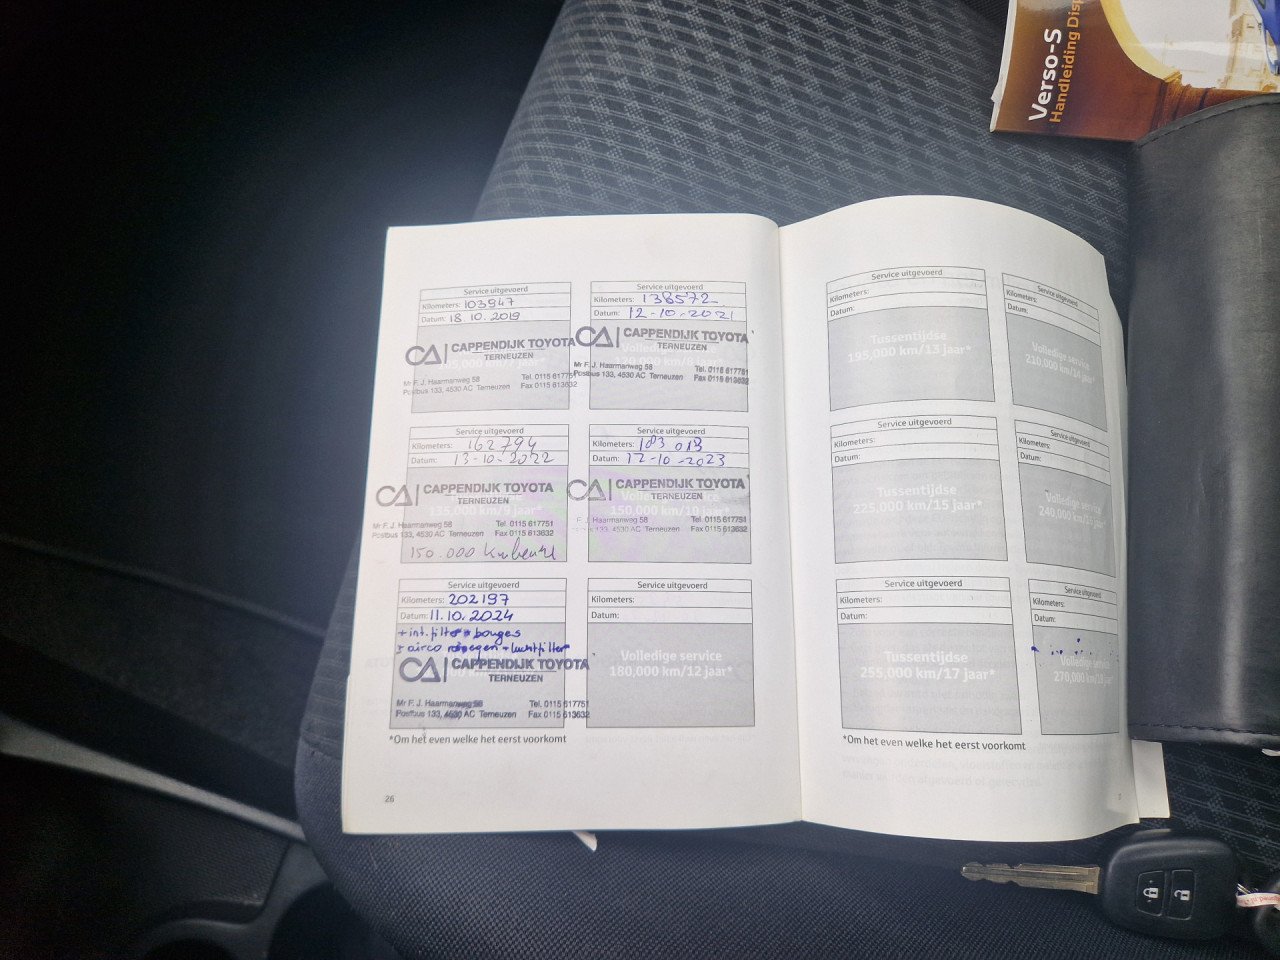 Verso-S
Handleiding
Service uitgevoerd
Kilometers: 103947
Datum: 18.10.2019
CA CAPPENDIJK TOYOTA
TERNEUZEN
Mr F. J. Haarmanweg 58 Tel. 0115 617751
Postbus 133, 4530 AC Terneuzen Fax 0115 613632
Service uitgevoerd
Kilometers: 138572
Datum: 12-10-2021
CA CAPPENDIJK TOYOTA
TERNEUZEN
Mr F. J. Haarmanweg 58 Tel. 0115 617751
Postbus 133, 4530 AC Terneuzen Fax 0115 613632
Service uitgevoerd
Kilometers: 162794
Datum: 13-10-2022
CA CAPPENDIJK TOYOTA
TERNEUZEN
135,000 km/9 jaar*
Mr F. J. Haarmanweg 58 Tel. 0115 617751
Postbus 133, 4530 AC Terneuzen Fax 0115 613632
150.000 km beurt
Service uitgevoerd
Kilometers: 183 013
Datum: 12-10-2023
CA CAPPENDIJK TOYOTA
TERNEUZEN
150,000 km/10 jaar*
F. J. Haarmanweg 58 Tel. 0115 617751
133, 4530 AC Terneuzen Fax 0115 613632
Service uitgevoerd
Kilometers: 202197
Datum: 11.10.2024
+ int. filter + bougies
+ airco reinigen + luchtfilter
CA CAPPENDIJK TOYOTA
TERNEUZEN
Mr F. J. Haarmanweg 58 Tel. 0115 617751
Postbus 133, 4530 AC Terneuzen Fax 0115 613632
Service uitgevoerd
Kilometers:
Datum:
Volledige service
180,000 km/12 jaar*
*Om het even welke het eerst voorkomt
26
Service uitgevoerd
Kilometers:
Datum:
Tussentijdse
195,000 km/13 jaar*
Service uitgevoerd
Kilometers:
Datum:
Volledige service
210,000 km/14 jaar*
Service uitgevoerd
Kilometers:
Datum:
Tussentijdse
225,000 km/15 jaar*
Service uitgevoerd
Kilometers:
Datum:
Volledige service
240,000 km/16 jaar*
Service uitgevoerd
Kilometers:
Datum:
Tussentijdse
255,000 km/17 jaar*
Service uitgevoerd
Kilometers:
Datum:
Volledige service
270,000 km/18 jaar*
*Om het even welke het eerst voorkomt